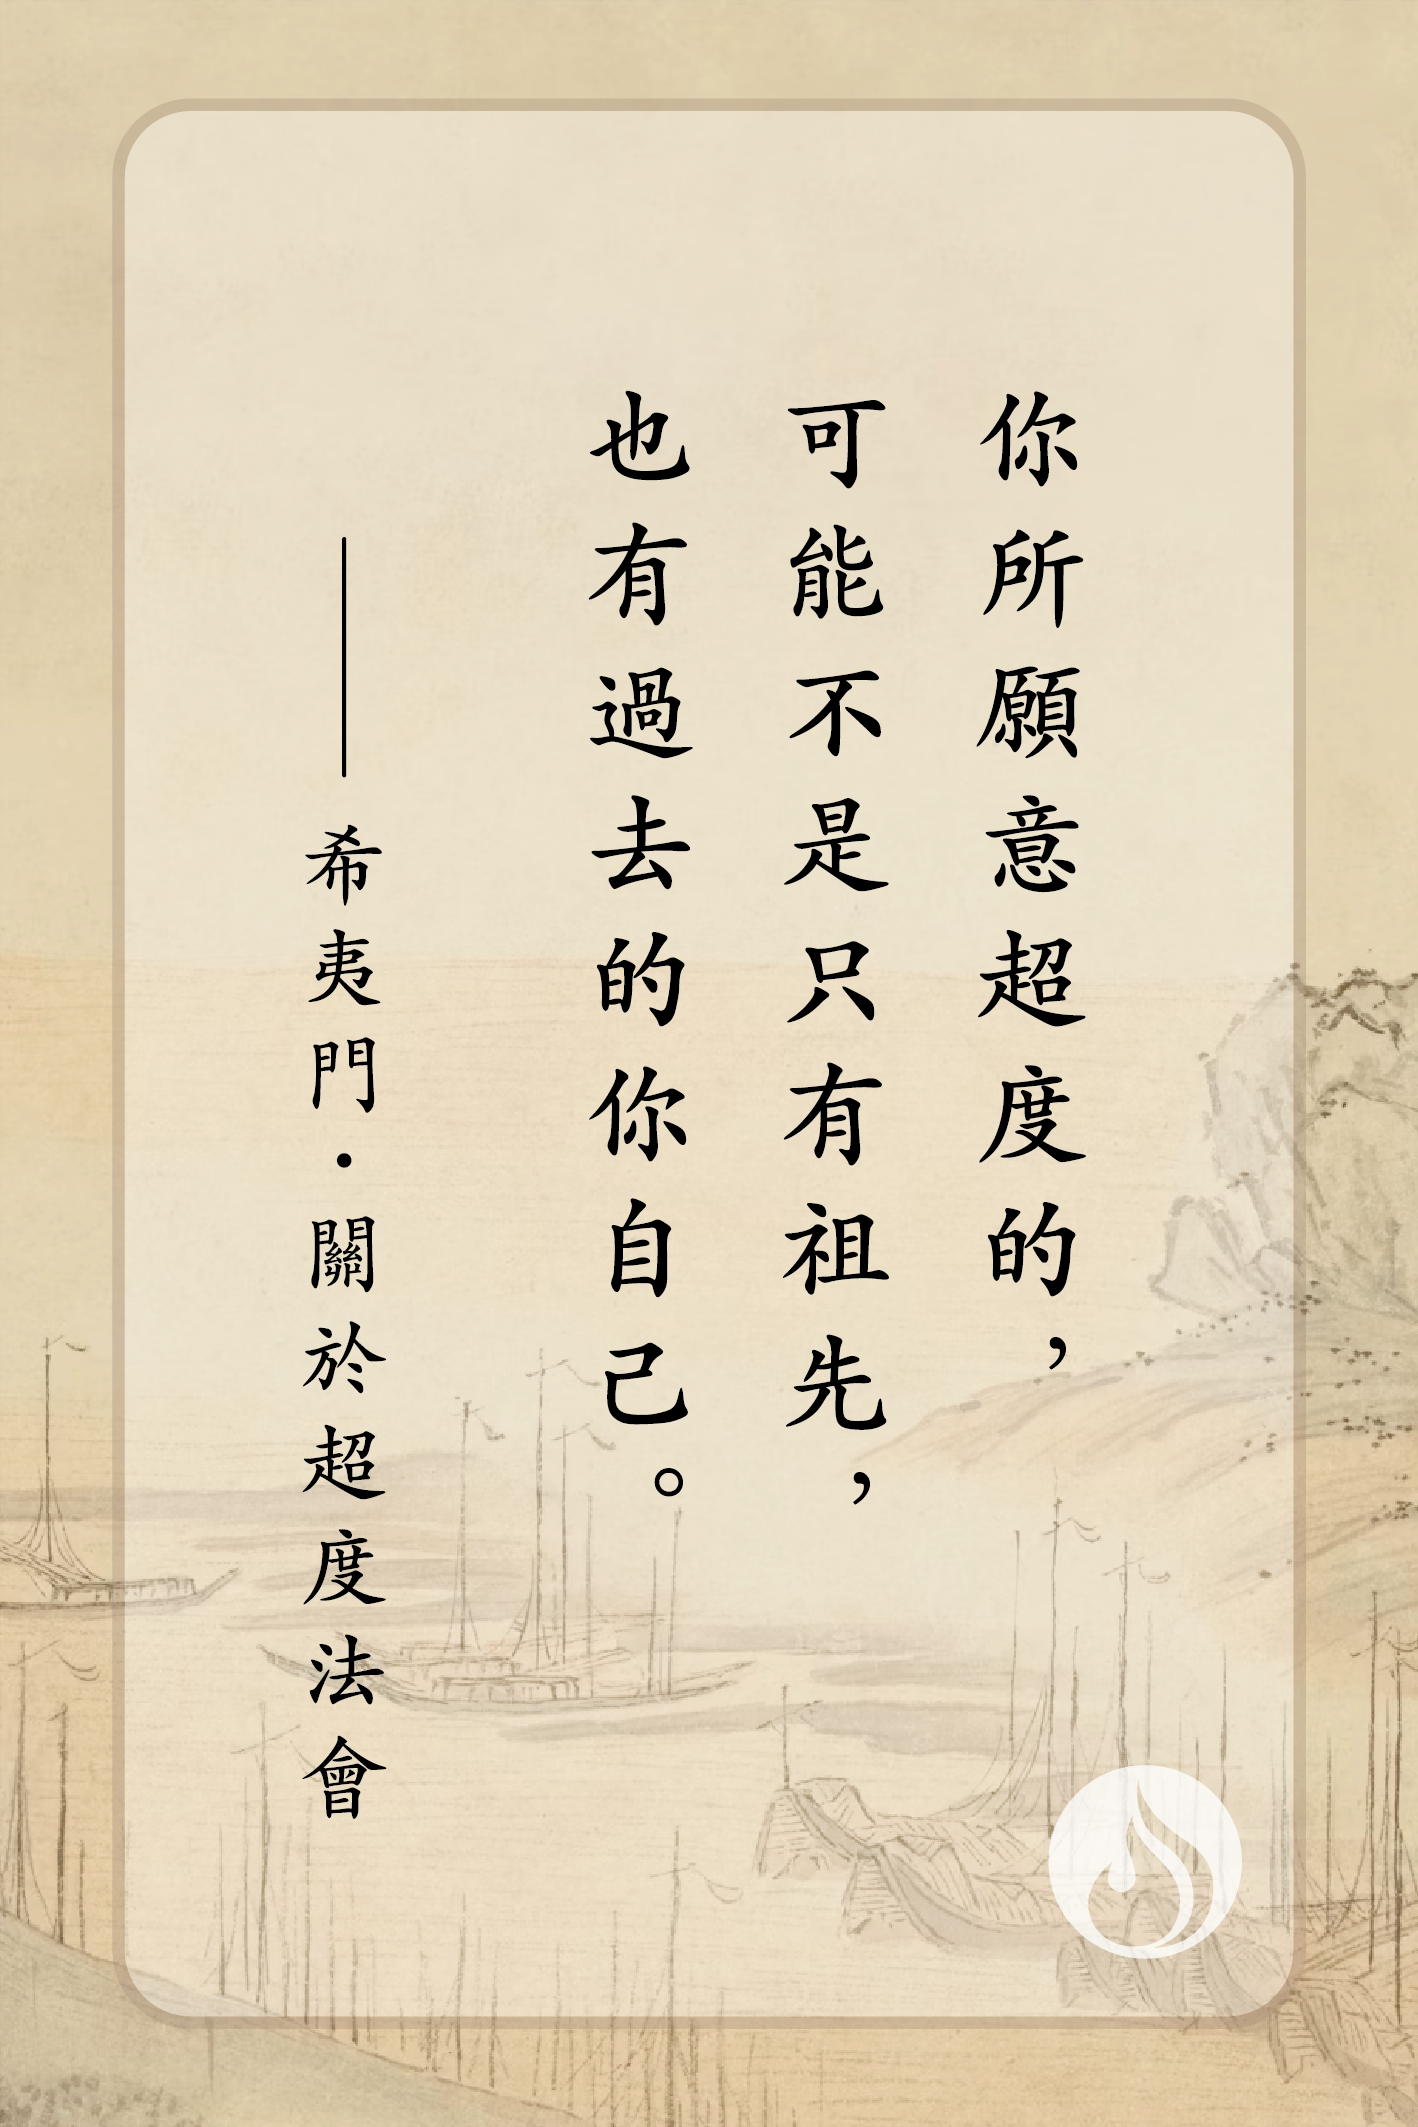 你所願意超度的，
可能不是只有祖先，
也有過去的你自己。
——希夷門·關於超度法會